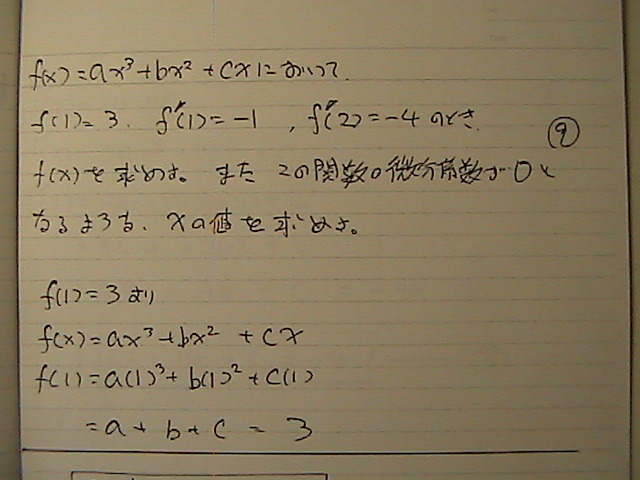 f(x)=ax³+bx²+cxにおいて.
f(1)=3. f′(1)=-1 , f′(2)=-4のとき. ⑨
f(x)を求めよ。また この関数の微分係数が0と
なるような、xの値を求めよ。
f(1)=3より
f(x)=ax³+bx²+cx
f(1)=a(1)³+b(1)²+c(1)
=a+b+c=3